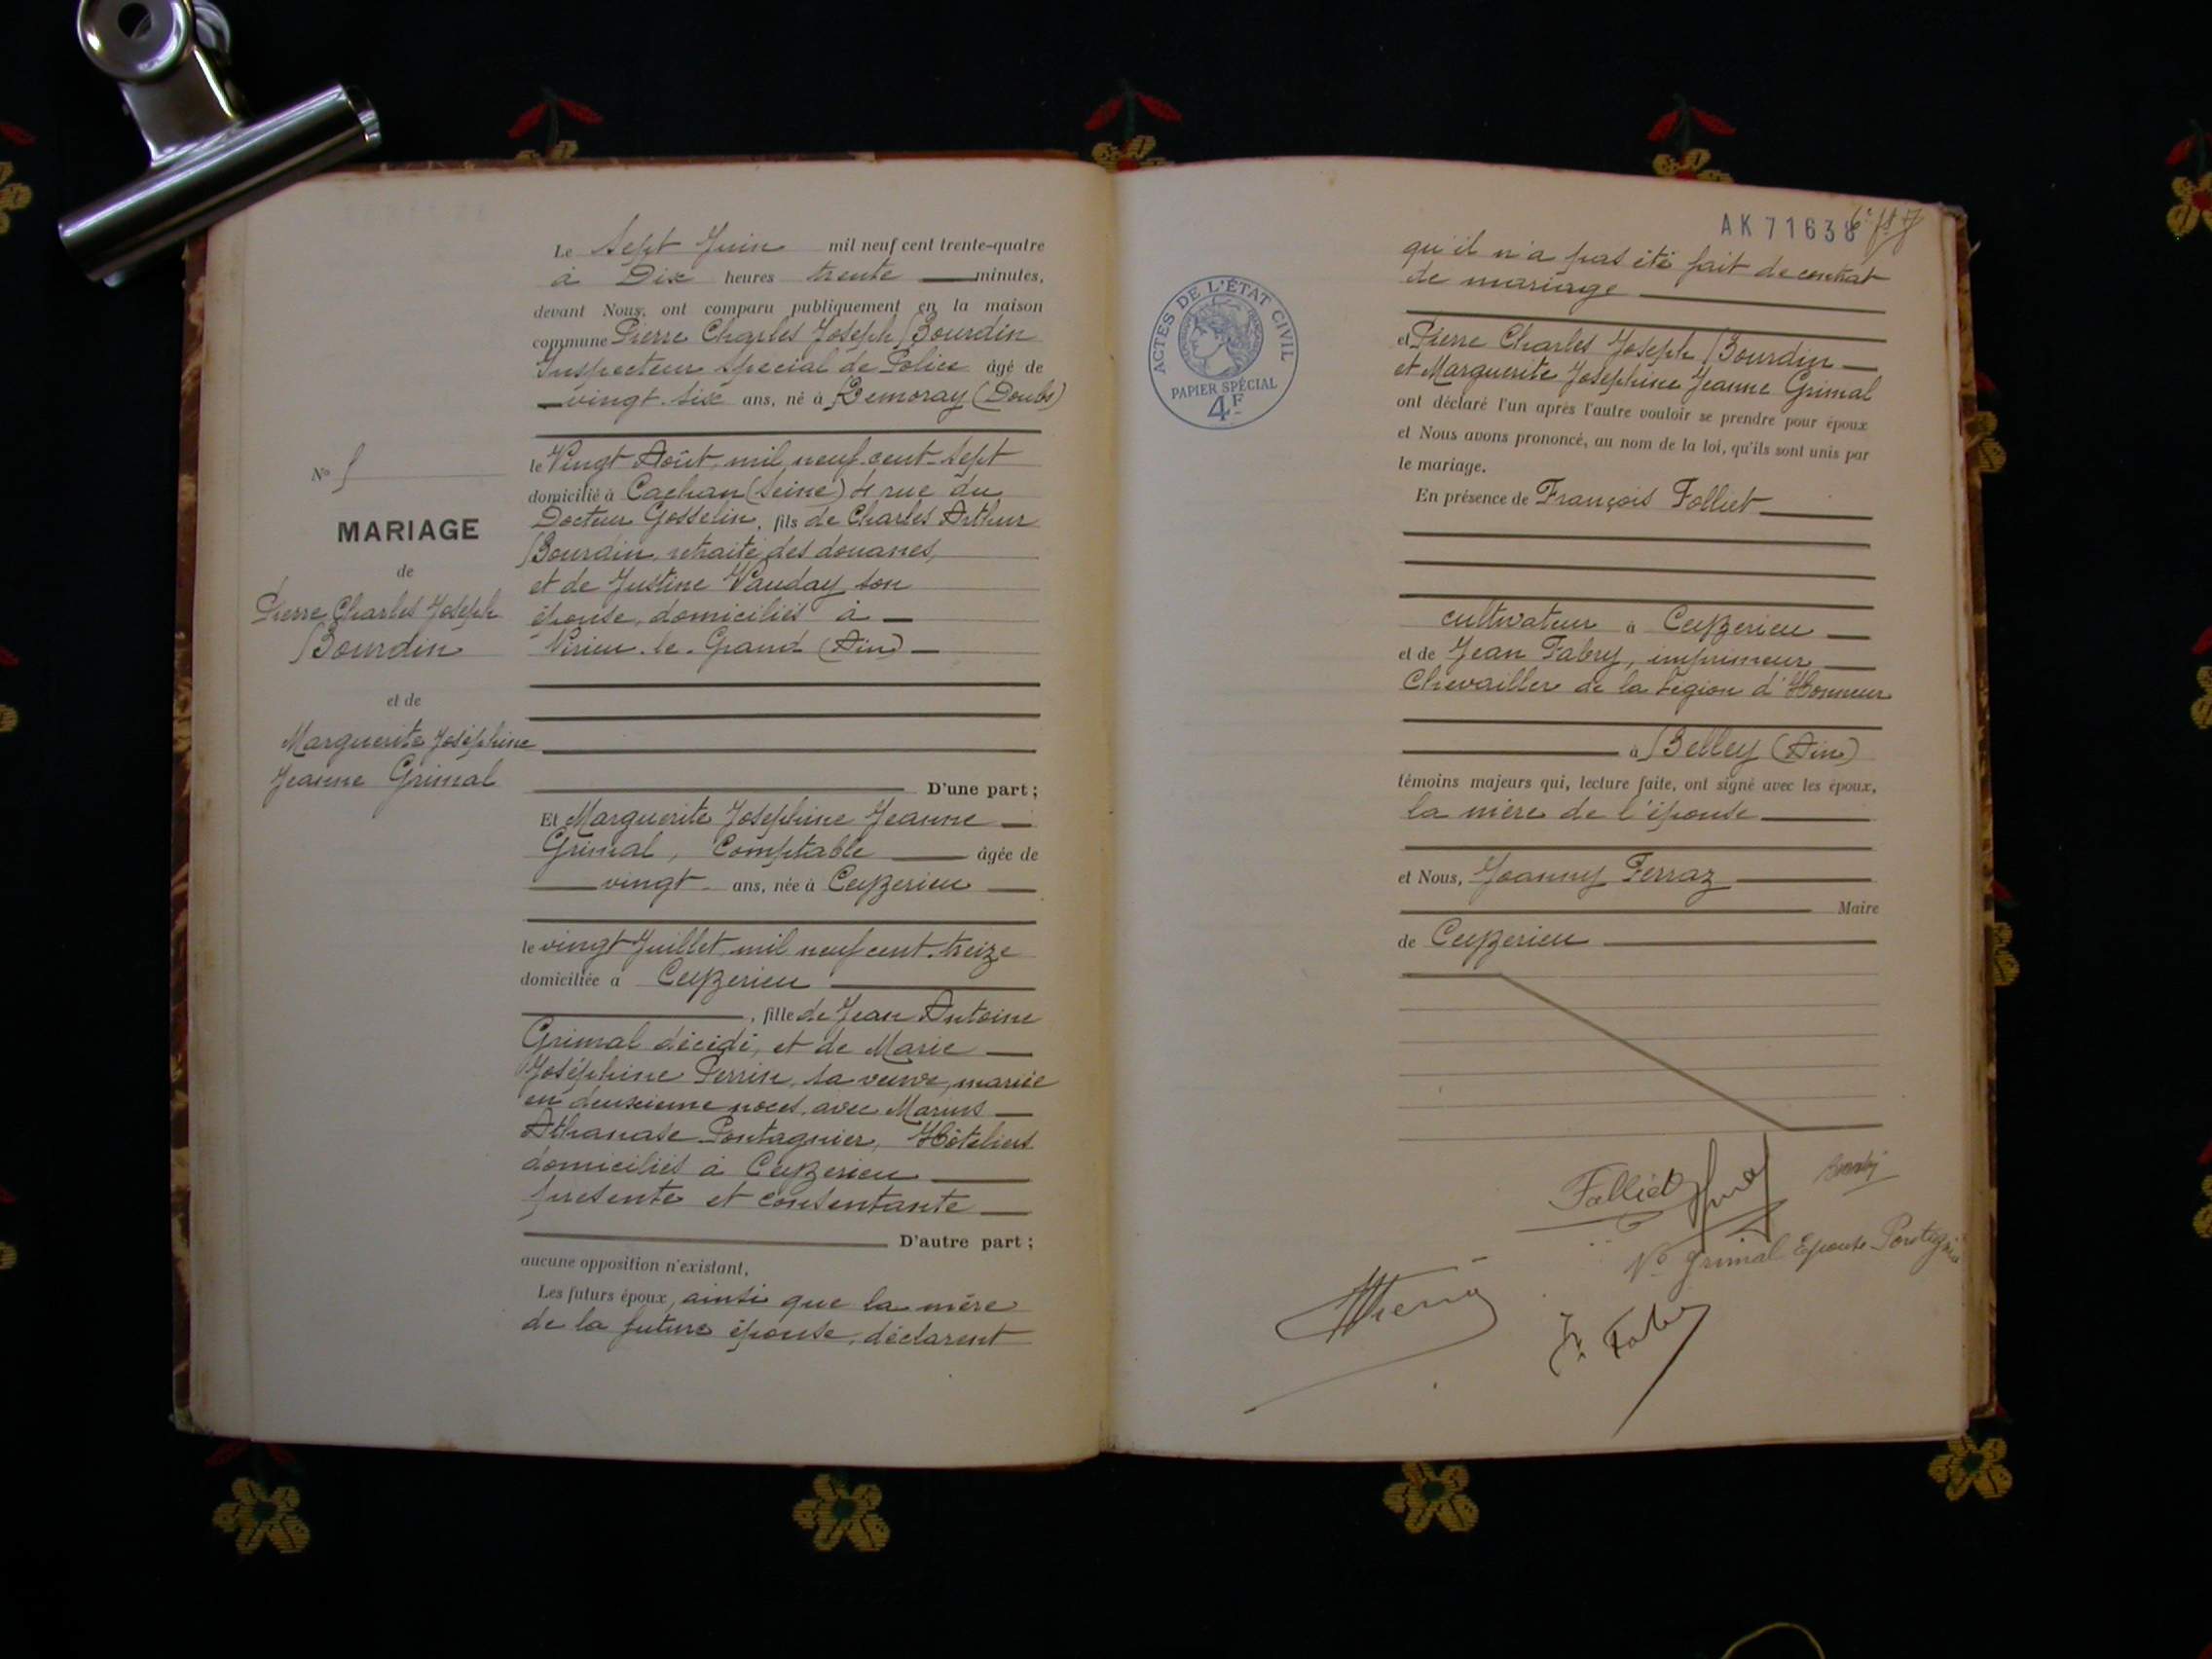 Le Sept Juin mil neuf cent trente-quatre
à Dix heures trente minutes,
devant Nous, ont comparu publiquement en la maison
commune Pierre Charles Joseph Bourdin
Inspecteur Spécial de Police âgé de
vingt-six ans, né à Remoray (Doubs)
le Vingt Août mil neuf cent sept
domicilié à Cachan (Seine) 4 rue du
Docteur Gosselin, fils de Charles Arthur
Bourdin, retraité des douanes,
et de Justine Vauday son
épouse, domiciliés à
Virieu-le-Grand (Ain)
D'une part ;
Et Marguerite Joséphine Jeanne
Grimal, Comptable âgée de
vingt ans, née à Ceyzerieu
le vingt Juillet mil neuf cent treize
domiciliée à Ceyzerieu
, fille de Jean Antoine
Grimal décédé, et de Marie
Joséphine Perrin, sa veuve, mariée
en deuxieme noces avec Marius
Athanase Pontagnier, Hôteliers
domiciliés à Ceyzerieu
présente et consentante
D'autre part ;
aucune opposition n'existant.
Les futurs époux, ainsi que la mère
de la future épouse, déclarent
No
MARIAGE
de
Pierre Charles Joseph
Bourdin
et de
Marguerite Joséphine
Jeanne Grimal
AK 71638
ACTES DE L'ÉTAT CIVIL
PAPIER SPÉCIAL
4F
qu'il n'a pas été fait de contrat
de mariage
et Pierre Charles Joseph Bourdin
et Marguerite Joséphine Jeanne Grimal
ont déclaré l'un après l'autre vouloir se prendre pour époux
et Nous avons prononcé, au nom de la loi, qu'ils sont unis par
le mariage.
En présence de François Folliet
cultivateur à Ceyzerieu
et de Jean Fabry, imprimeur
Chevailler de la Légion d'Honneur
à Belley (Ain)
témoins majeurs qui, lecture faite, ont signé avec les époux,
la mère de l'épouse
et Nous, Joanny Ferraz
Maire
de Ceyzerieu
Folliet
Ve Grimal Epouse Pontagnier